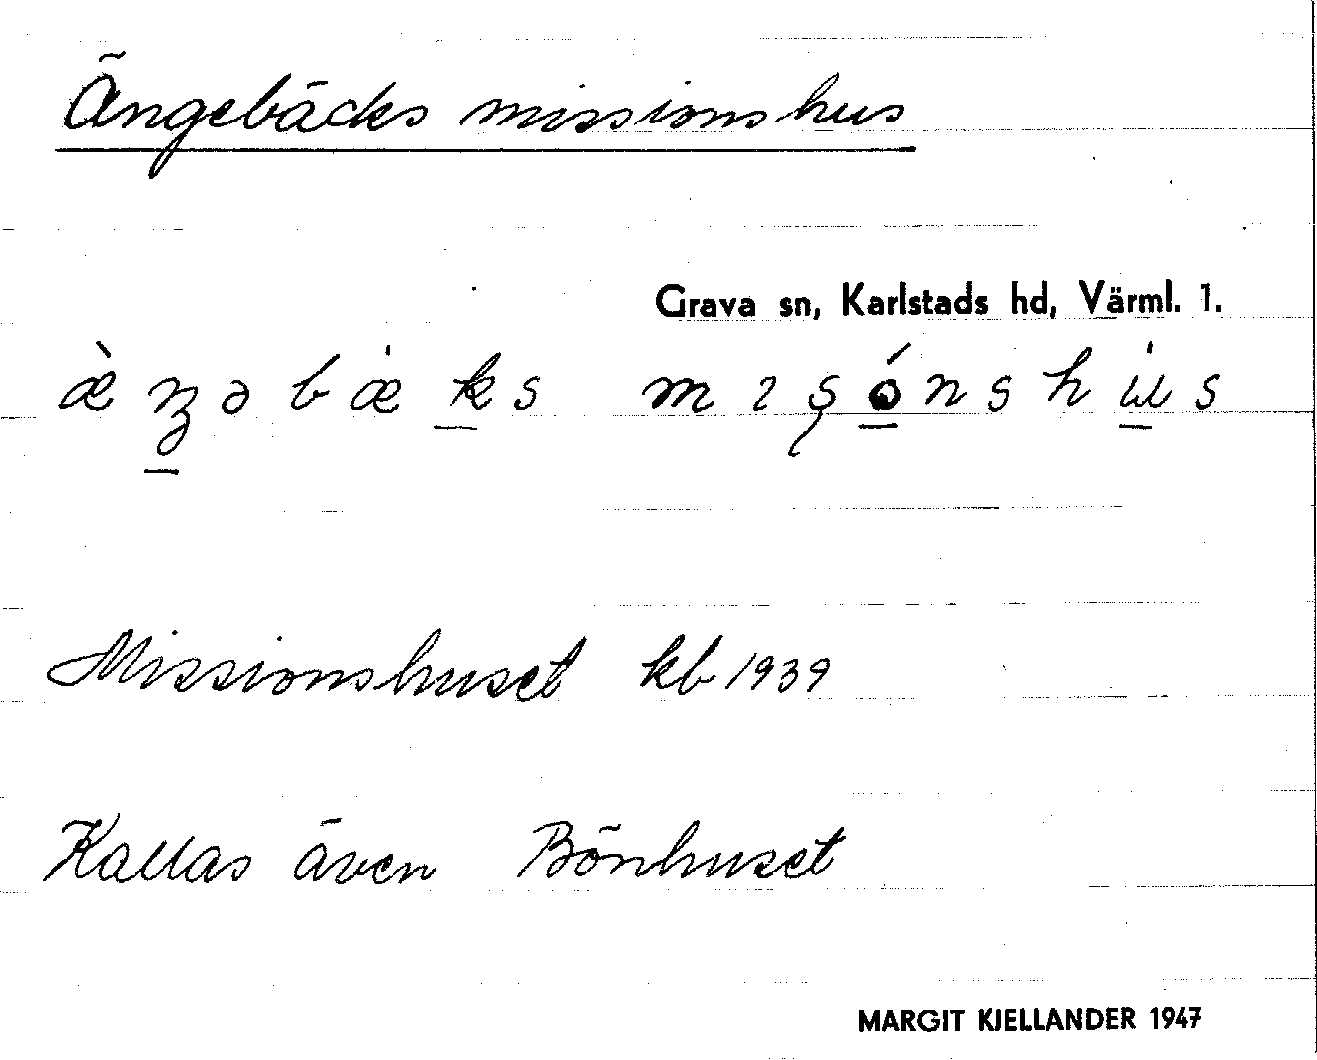 Ängebäcks missionshus
Grava sn, Karlstads hd, Värml. 1.
æ̀ŋ̠əbæ̇k̠s mɪʂó̠nshu̠̇s
Missionshuset kb 1939
Kallas även Bönhuset
MARGIT KJELLANDER 1947